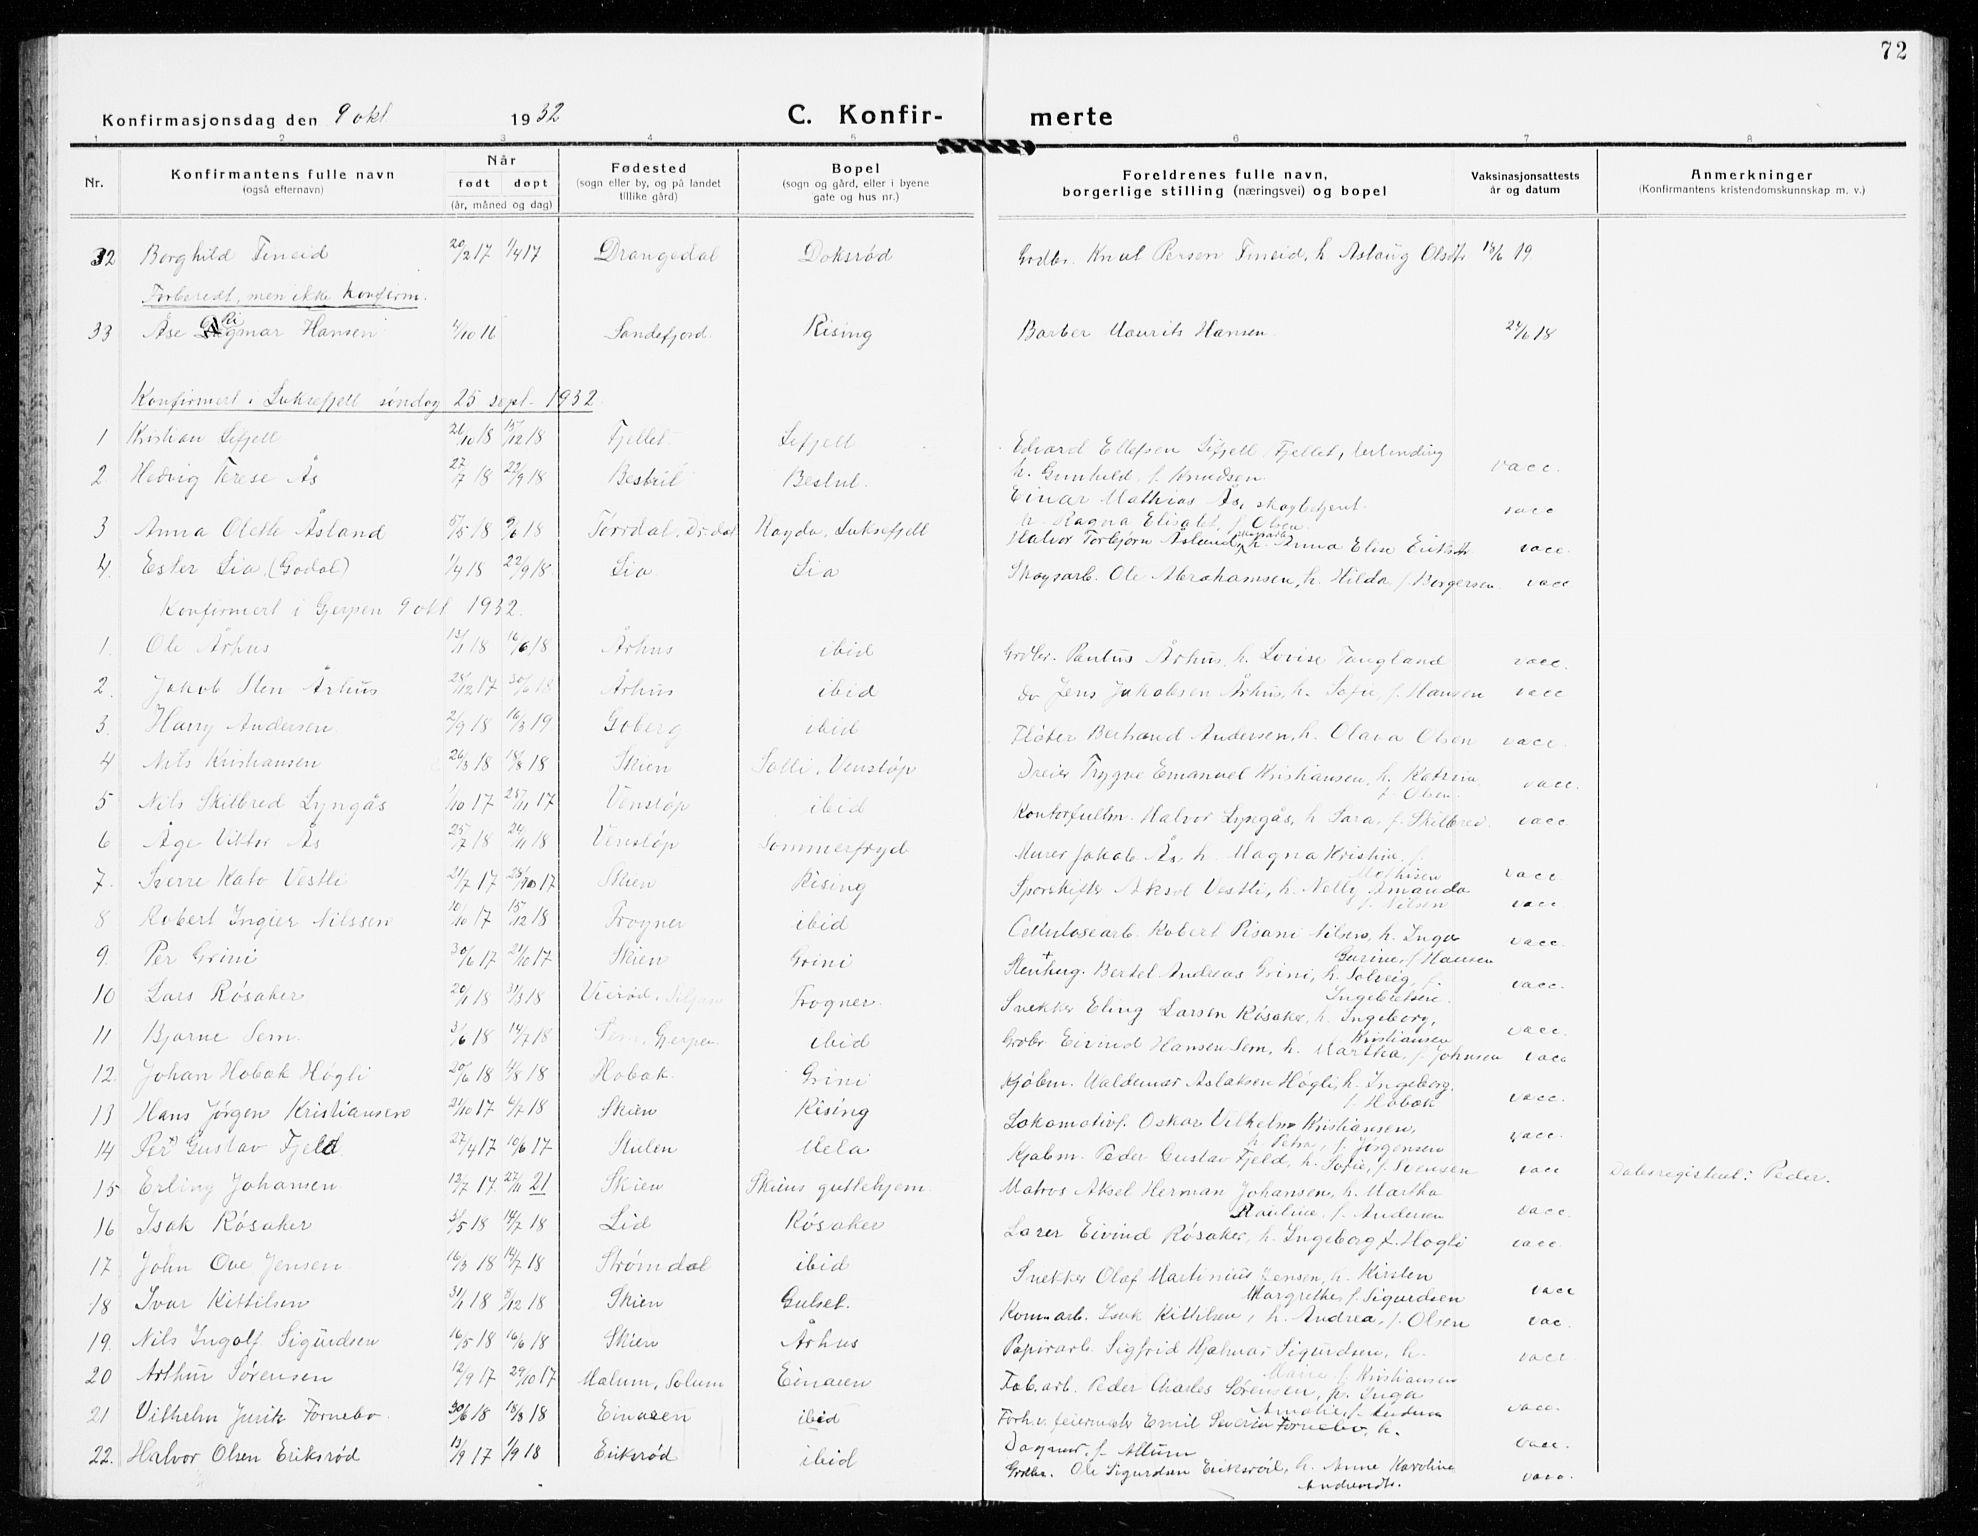 72
Konfirmasjonsdag den 9 okt 1932 C. Konfir- merte
1 2 3 4 5 6 7 8
Nr. Konfirmantens fulle navn (også efternavn) Når født døpt (år, måned og dag) Fødested (sogn eller by, og på landet tillike gård) Bopel (sogn og gård, eller i byene gate og hus nr.) Foreldrenes fulle navn, borgerlige stilling (næringsvei) og bopel Vaksinasjonsattests år og datum Anmerkninger (Konfirmantens kristendomskunnskap m. v.)
32 Borghild Fineid 20/2 17 1/4 17 Drangedal Doksrød Grdbr. Knut Persen Fineid, h. Aslaug Olsdtr 18/6 19
Forberedt, men ikke konfirm.
33 Åse Hansen 4/10 16 Sandefjord Rising Barber Maurits Hansen 24/6 18
Konfirmert i Luksefjell søndag 25 sept. 1932.
1 Kristian Lifjell 21/10 18 15/12 18 Fjellet Lifjell Edvard Ellefsen Lifjell, Fjellet,
h. Gunhild, f. Knudsen. vacc.
2 Hedvig Terese Ås 27/7 18 22/9 18 Bestul Bestul Einar Mathias Ås, skogbetjent
h. Ragna Elisabet, f. Olsen. vacc
3 Anna Olette Åsland 5/5 18 9/6 18 Tørrdal, Dr.dal Høyda, Luksefjell Halvor Torbjørn Åsland, skogsarb. h. Anna Elise Eriksdtr vacc.
4. Ester Lia (Godal) 1/9 18 22/9 18 Lia Lia Skogsarb. Ole Abrahamsen, h. Hilda f. Borgersen vacc
Konfirmert i Gjerpen 9 okt 1932.
1. Ole Århus 13/1 18 16/6 18 Århus ibid Grdbr. Pantus Århus, h. Lovise Tangland vacc.
2. Jakob Sten Århus 28/12 17 30/6 18 Århus ibid do Jens Jakobsen Århus, h. Sofie, f. Hansen vacc
3. Harry Andersen 2/9 18 16/3 19 Goberg ibid Fløter Bertrand Andersen, h. Olava Olsen vacc.
4 Nils Kristiansen 26/3 18 18/8 18 Skien Solli, Venstøp Dreier Trygve Emanuel Kristiansen, h. Katrina
f. Olsen. vacc.
5 Nils Skilbred Lyngås 1/10 17 25/11 17 Venstøp ibid Kontorfullm. Halvor Lyngås, h. Sara, f. Skilbred. vacc
6 Åge Viktor Ås 25/7 18 24/11 18 Venstøp Sommerfryd Murer Jakob Ås, h. Magna Kristine f.
Mathisen vacc
7. Sverre Kato Vestli 21/7 17 28/10 17 Skien Rising Sporskifter Aksel Vestli, h. Nelly Amanda
f. Nilsen vacc.
8 Robert Ingier Nilssen 10/10 17 15/12 18 Frogner ibid Cellulosearb. Robert Pisani Nilsen, h. Inga
Gurine, f. Hansen vacc.
9. Per Grini 30/6 17 21/10 17 Skien Grini Stenhugg. Bertel Andreas Grini, h. Solveig, f.
Ingebretsen. vacc.
10 Lars Røsaker 20/1 18 31/3 18 Vierød, Siljan Frogner Snekker Eling Larsen Røsaker, h. Ingeborg,
Kristiansen vacc.
11 Bjarne Sem. 3/6 18 14/7 18 Sem, Gjerpen ibid Grdbr Eivind Hansen Sem, h. Martha, f. Johnsen vacc
12. Johan Hobæk Høgli 20/6 18 4/8 18 Hobæk Grini Kjøbm. Valdemar Aslaksen Høgli, h. Ingeborg,
f. Hobæk vacc.
13 Hans Jørgen Kristiansen 21/10 17 6/7 18 Skien Rising Lokomotivf. Oskar Vilhelm Kristiansen,
h. Petra, f. Jørgensen vacc.
14 Per Gustav Fjeld 27/4 17 10/6 17 Stulen Mela Kjøbm. Peder Gustav Fjeld, h. Sofie, f. Svensen vacc Dåbsregisteret: Peder.
15 Erling Johansen 12/7 17 27/11 21 Skien Skiens guttehjem. Matros Aksel Herman Johansen, h. Martha
Pauline f. Andersen vacc.
16 Isak Røsaker 3/5 18 14/7 18 Lid Røsaker Lærer Eivind Røsaker, h. Ingeborg f. Høgli vacc.
17 John Ove Jensen 16/3 18 14/7 18 Strømdal ibid Snekker Olaf Martinius Jensen, h. Kirsten
Margrethe, f. Sigurdsen vacc
18 Ivar Kittilsen 31/1 18 8/12 18 Skien Gulset. Komm.arb. Isak Kittilsen, h. Andrea, f. Olsen vac.
19. Nils Ingolf Sigurdsen 16/5 18 16/6 18 Skien Århus Papirarb. Sigfrid Hjalmar Sigurdsen, h.
Marie f. Kristiansen vacc.
20 Arthur Sørensen 12/9 17 29/10 17 Mælum, Solum Einaren Fab.arb. Peder Charles Sørensen, h. Inga
Amalie, f. vacc.
21 Vilhelm Jurik Fornebo. 30/6 18 18/8 18 Einaren ibid Forh.v. feiermester Emil Severin Fornebo, h.
Dagmar, f. Allum vacc.
22. Halvor Olsen Eriksrød 13/9 17 1/9 18 Eriksrød ibid Grdbr. Ole Sigurdsen Eriksrød, h. Anne Karoline
Andersdtr. vacc.